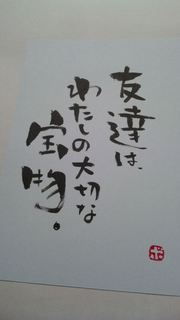 友達は、
わたしの大切な
宝物。